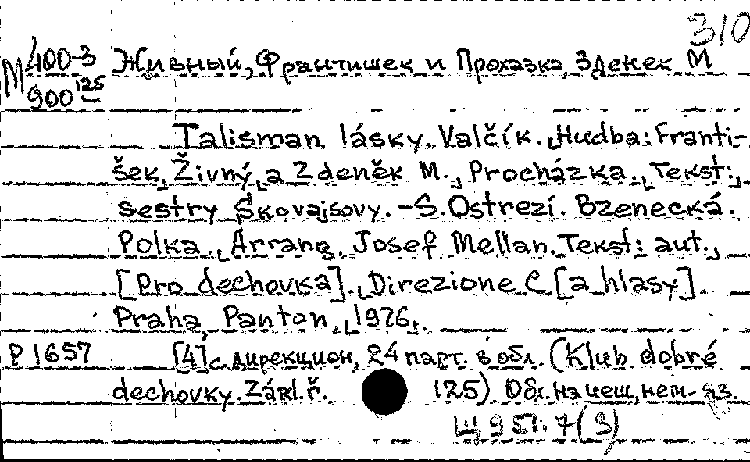 310
М 400-3 Живный, Франтишек и Проказка, Зденек М
900 125
Talisman lásky. Valčík. Hudba: Franti-
šek Živný a Zdeněk M. Procházka. Tekst:
sestry Škovajsovy. – S. Ostrezí. Bzenecká.
Polka. Arrang. Josef Mellan. Tekst: aut.
[Pro dechovka]. Direzione C [a hlasy].
Praha, Panton, 1976.
P 1657 [4] с. дирекцион, 24 парт. в обл. (Klub dobré
dechovky. Zákl. ř. 125) Обл. на чеш, нем. яз
Ш 951.7(3)